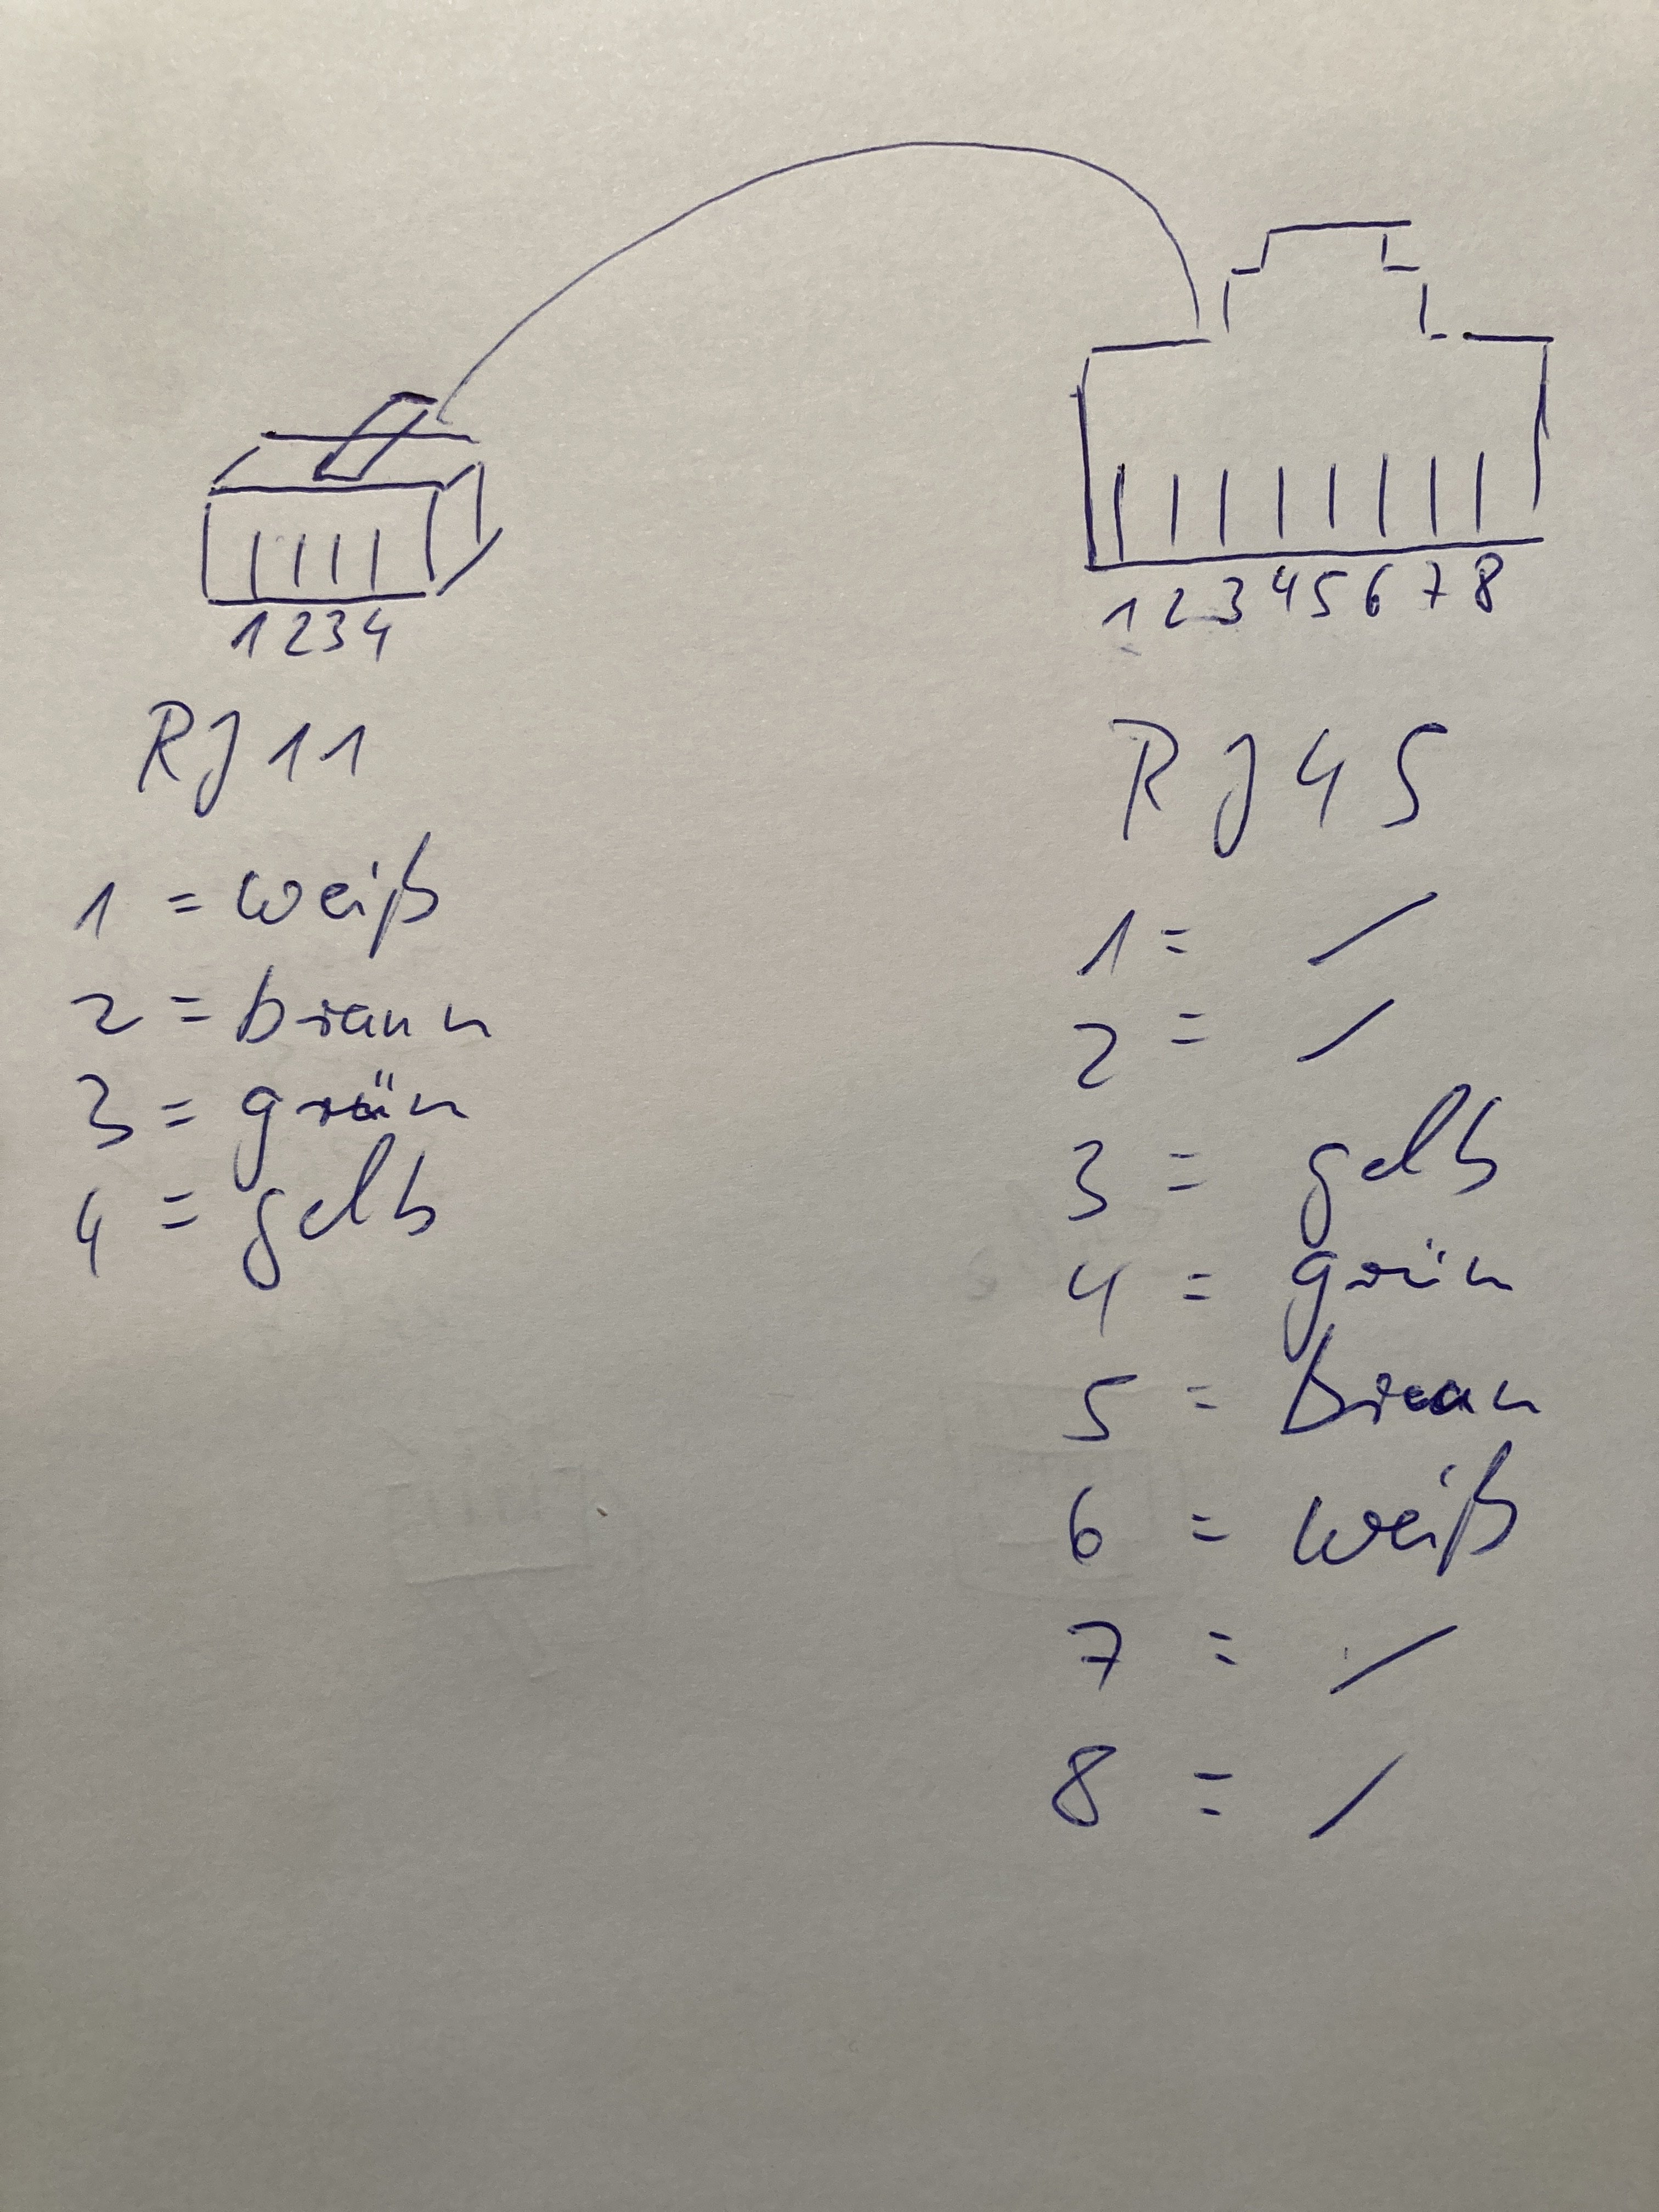 1 2 3 4
RJ 11
1 = weiß
2 = braun
3 = grün
4 = gelb
1 2 3 4 5 6 7 8
RJ 45
1 = /
2 = /
3 = gelb
4 = grün
5 = braun
6 = weiß
7 = /
8 = /